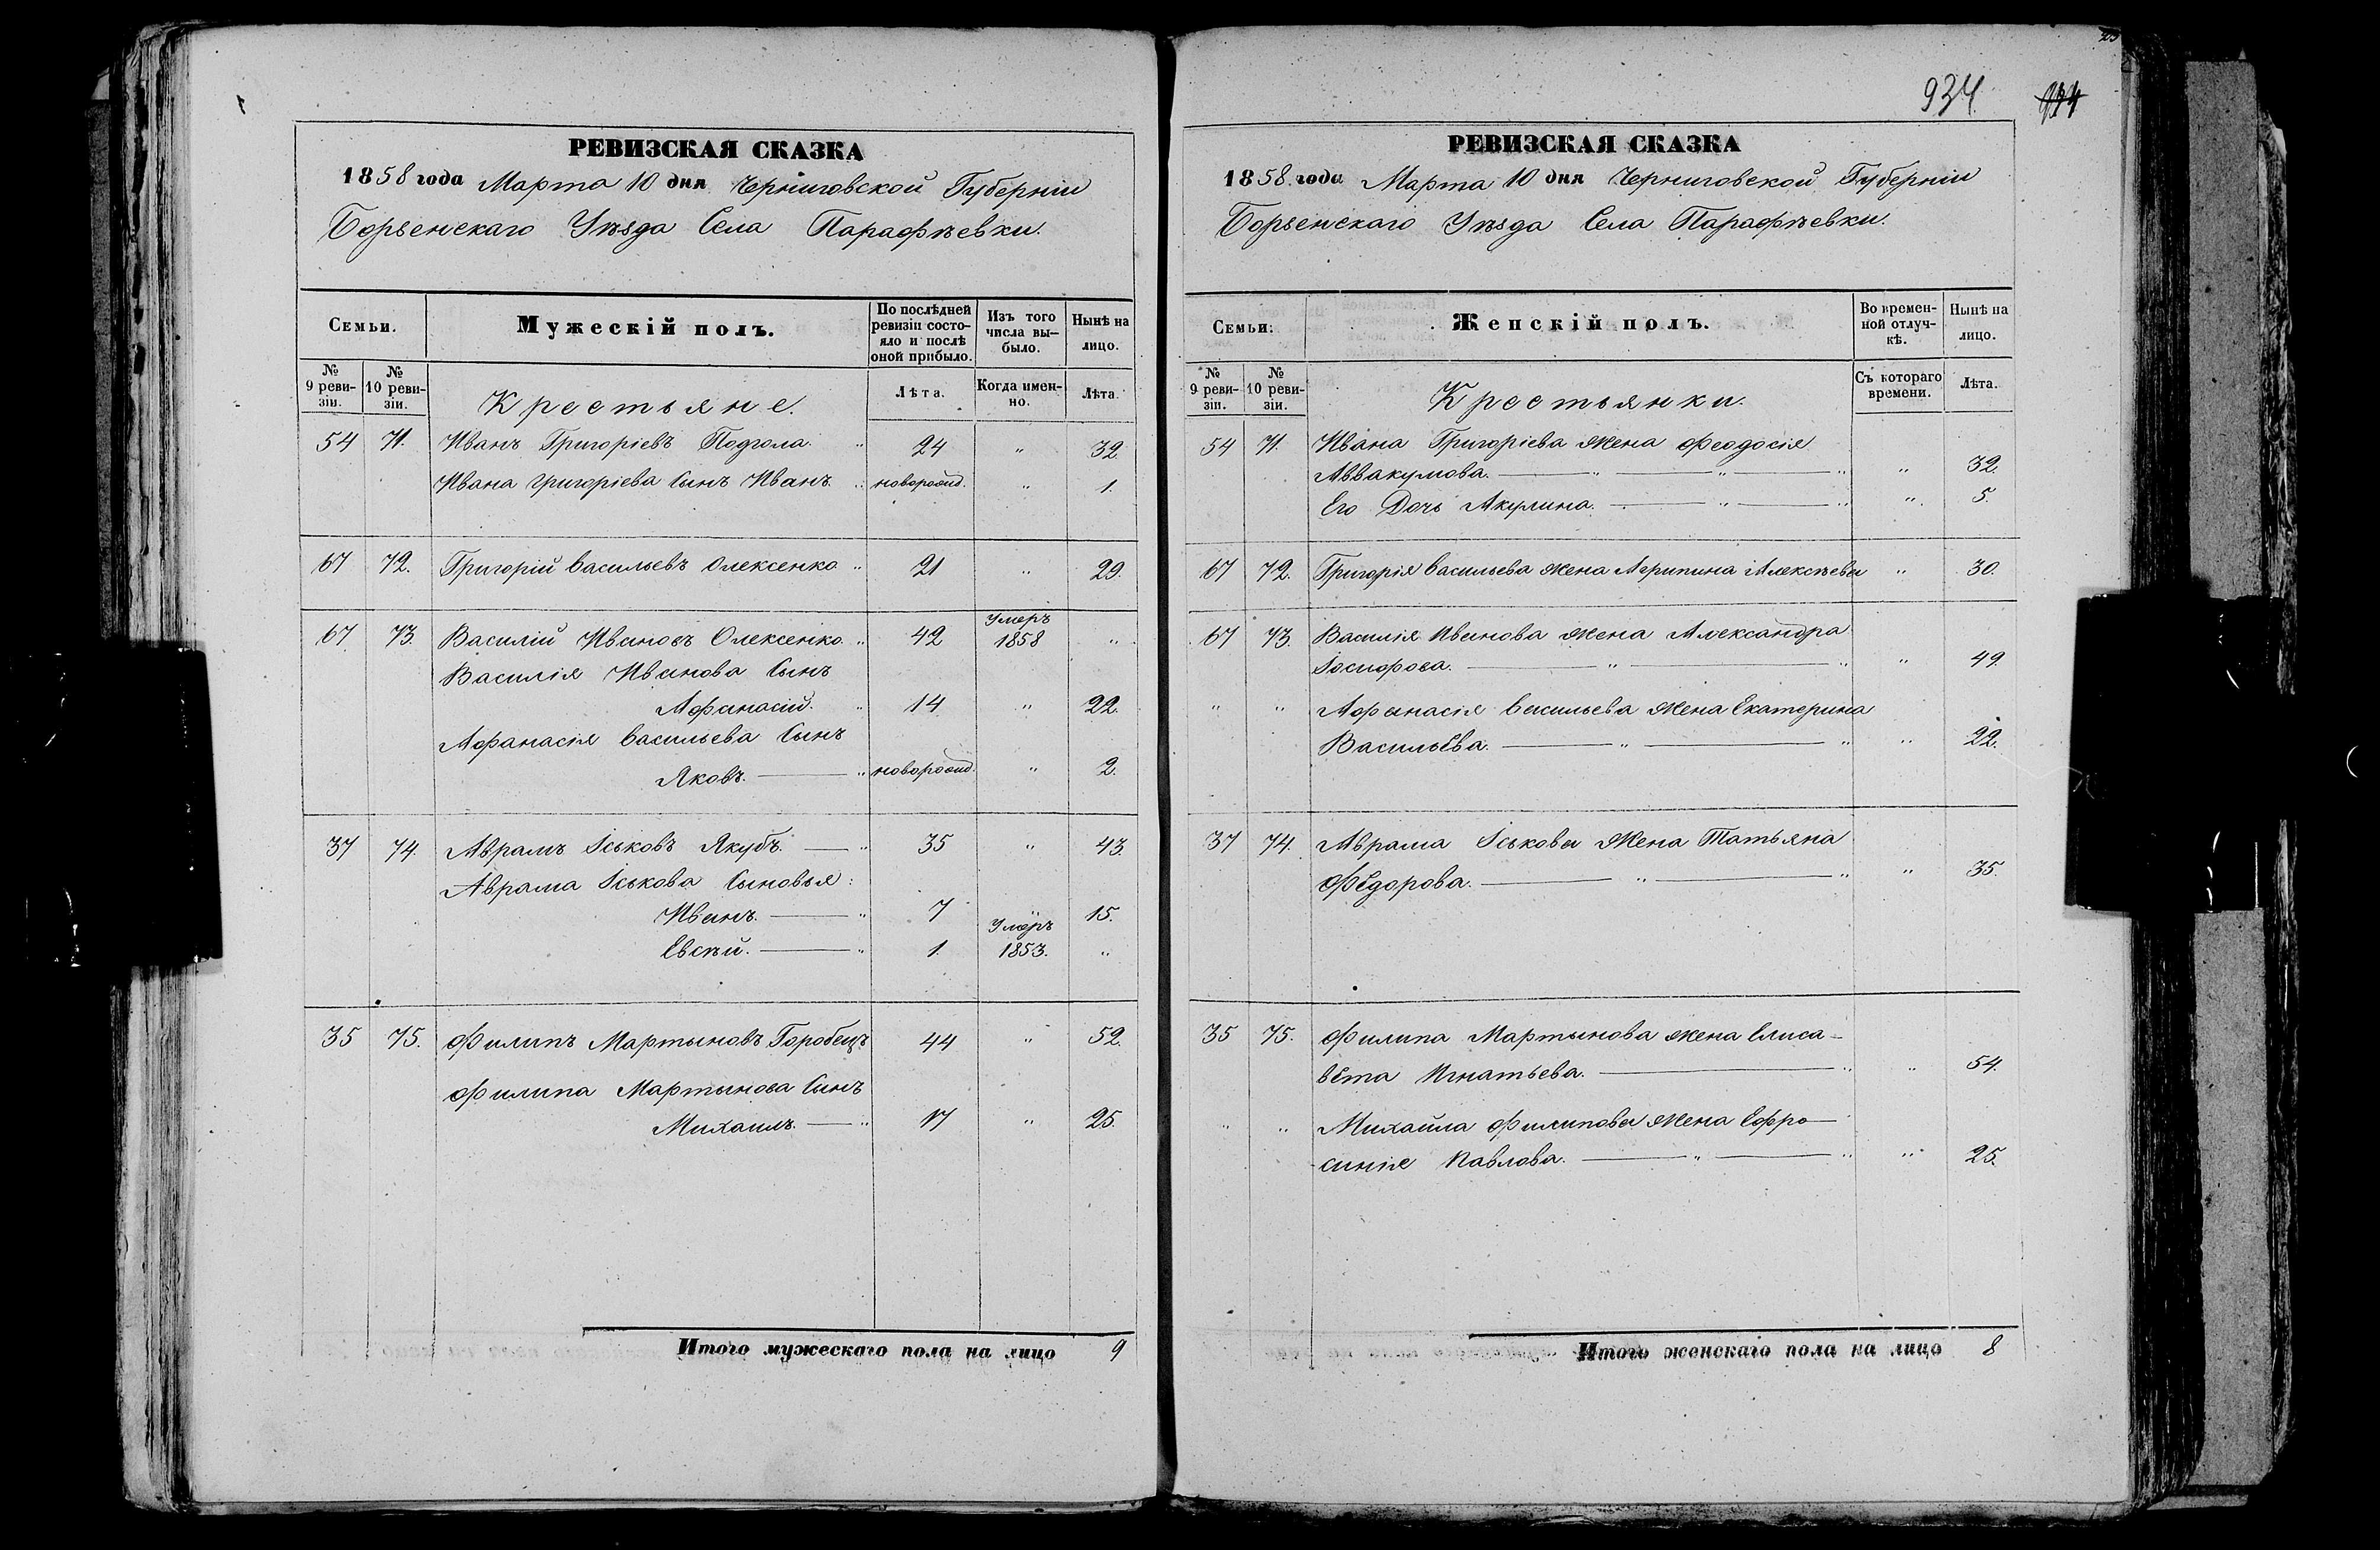 934.
РЕВИЗСКАЯ СКАЗКА
1858 года Марта 10 дня Черниговской Губерніи
Борзенскаго Уѣзда Села Парафѣевки.
Семьи.
Мужескій полъ.
По послѣдней ревизіи состо-
яло и послѣ оной прибыло.
Изъ того числа вы-
было.
Нынѣ на лицо.
№ 9 реви-
зіи.
№ 10 реви-
зіи.
Крестьяне.
Лѣта.
Когда имен-
но.
Лѣта.
54 71. Иванъ Григоріевъ Подгола. " 24 " 32.
Ивана Григоріева Сынъ Иванъ. новорожд. " 1.
67 72. Григорій Васильевъ Олексенко " 21 " 29.
Умеръ
67 73. Василій Ивановъ Олексенко. " 42 1858 "
Василія Иванова Сынъ
Афанасій. " 14 " 22.
Афанасія Васильева Сынъ
Яковъ. — " новорожд. " 2.
37 74. Аврамъ Іськовъ Якубъ. — " 35 " 43.
Аврама Іськова Сыновья:
Иванъ. — " 7 15.
Умеръ
Евсѣй. — " 1. 1853. "
35 75. Филипъ Мартыновъ Горобецъ 44 " 52.
Филипа Мартынова Сынъ
Михаилъ. — " 17 " 25.
Итого мужескаго пола на лицо 9
РЕВИЗСКАЯ СКАЗКА
1858 года Марта 10 дня Черниговской Губерніи
Борзенскаго Уѣзда Села Парафѣевки.
Семьи.
Женскій полъ.
Во времен-
ной отлуч-
кѣ.
Нынѣ на лицо.
№ 9 реви-
зіи.
№ 10 реви-
зіи.
Крестьянки.
Съ котораго времени.
Лѣта.
54 71. Ивана Григоріева Жена Феодосія
Аввакумова. — " — " — " " 32.
Его Дочь Акулина. — " — " " 5.
67 72. Григорія Васильева Жена Агрипина Алексѣева " 30.
67 73. Василія Иванова Жена Александра
Іосифова. — " — " " 49.
" " Афанасія Васильева Жена Екатерина
Васильева. — " — " " 22.
37 74. Аврама Іськова Жена Татьяна
Федорова. — " — " " 35.
35 75. Филипа Мартынова Жена Елиса-
вета Игнатьева. — " " 54.
" " Михаила Филипова Жена Ефро-
синія Павлова. — " — " " 25.
Итого женскаго пола на лицо 8